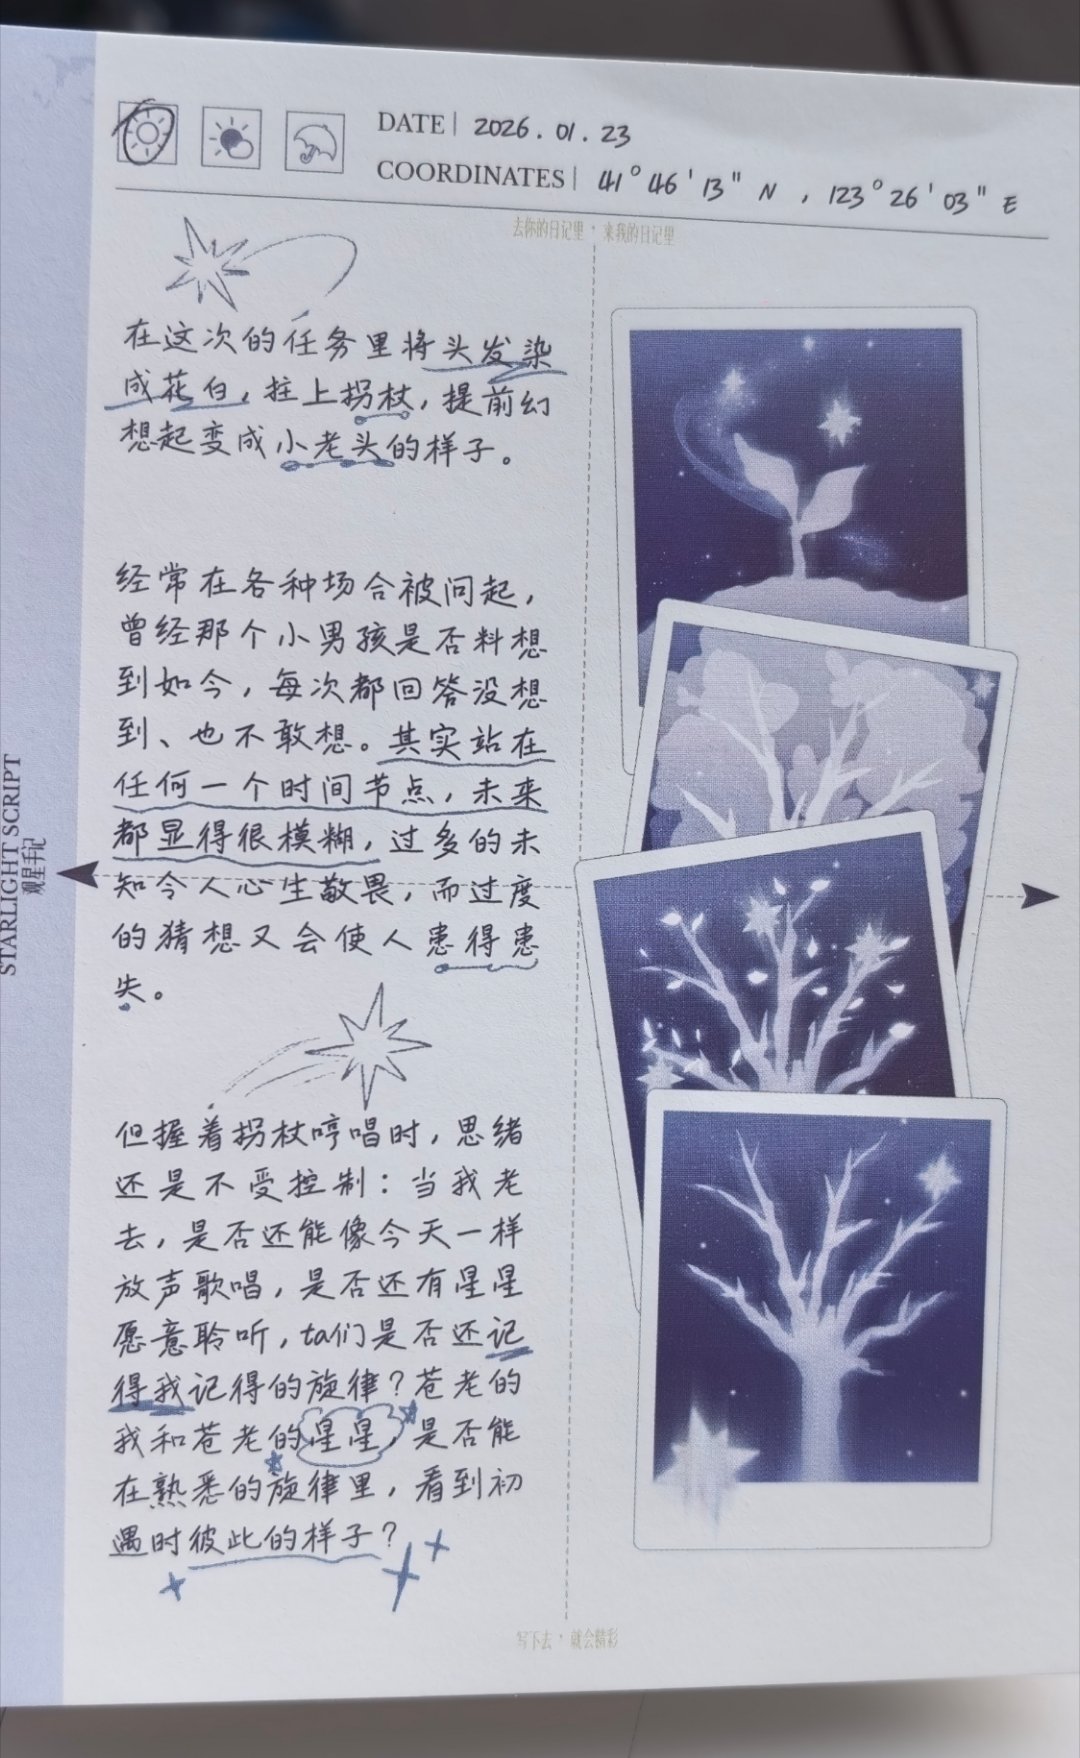 DATE | 2026.01.23
COORDINATES | 41°46'13" N , 123°26'03" E
去你的日记里，来我的日记里
在这次的任务里将头发染
成花白，拄上拐杖，提前幻
想起变成小老头的样子。
经常在各种场合被问起，
曾经那个小男孩是否料想
到如今，每次都回答没想
到、也不敢想。其实站在
任何一个时间节点，未来
都显得很模糊，过多的未
知令人心生敬畏，而过度
的猜想又会使人患得患
失。
但握着拐杖哼唱时，思绪
还是不受控制：当我老
去，是否还能像今天一样
放声歌唱，是否还有星星
愿意聆听，ta们是否还记
得我记得的旋律？苍老的
我和苍老的星星，是否能
在熟悉的旋律里，看到初
遇时彼此的样子？
写下去，就会精彩
STARLIGHT SCRIPT
观星手记